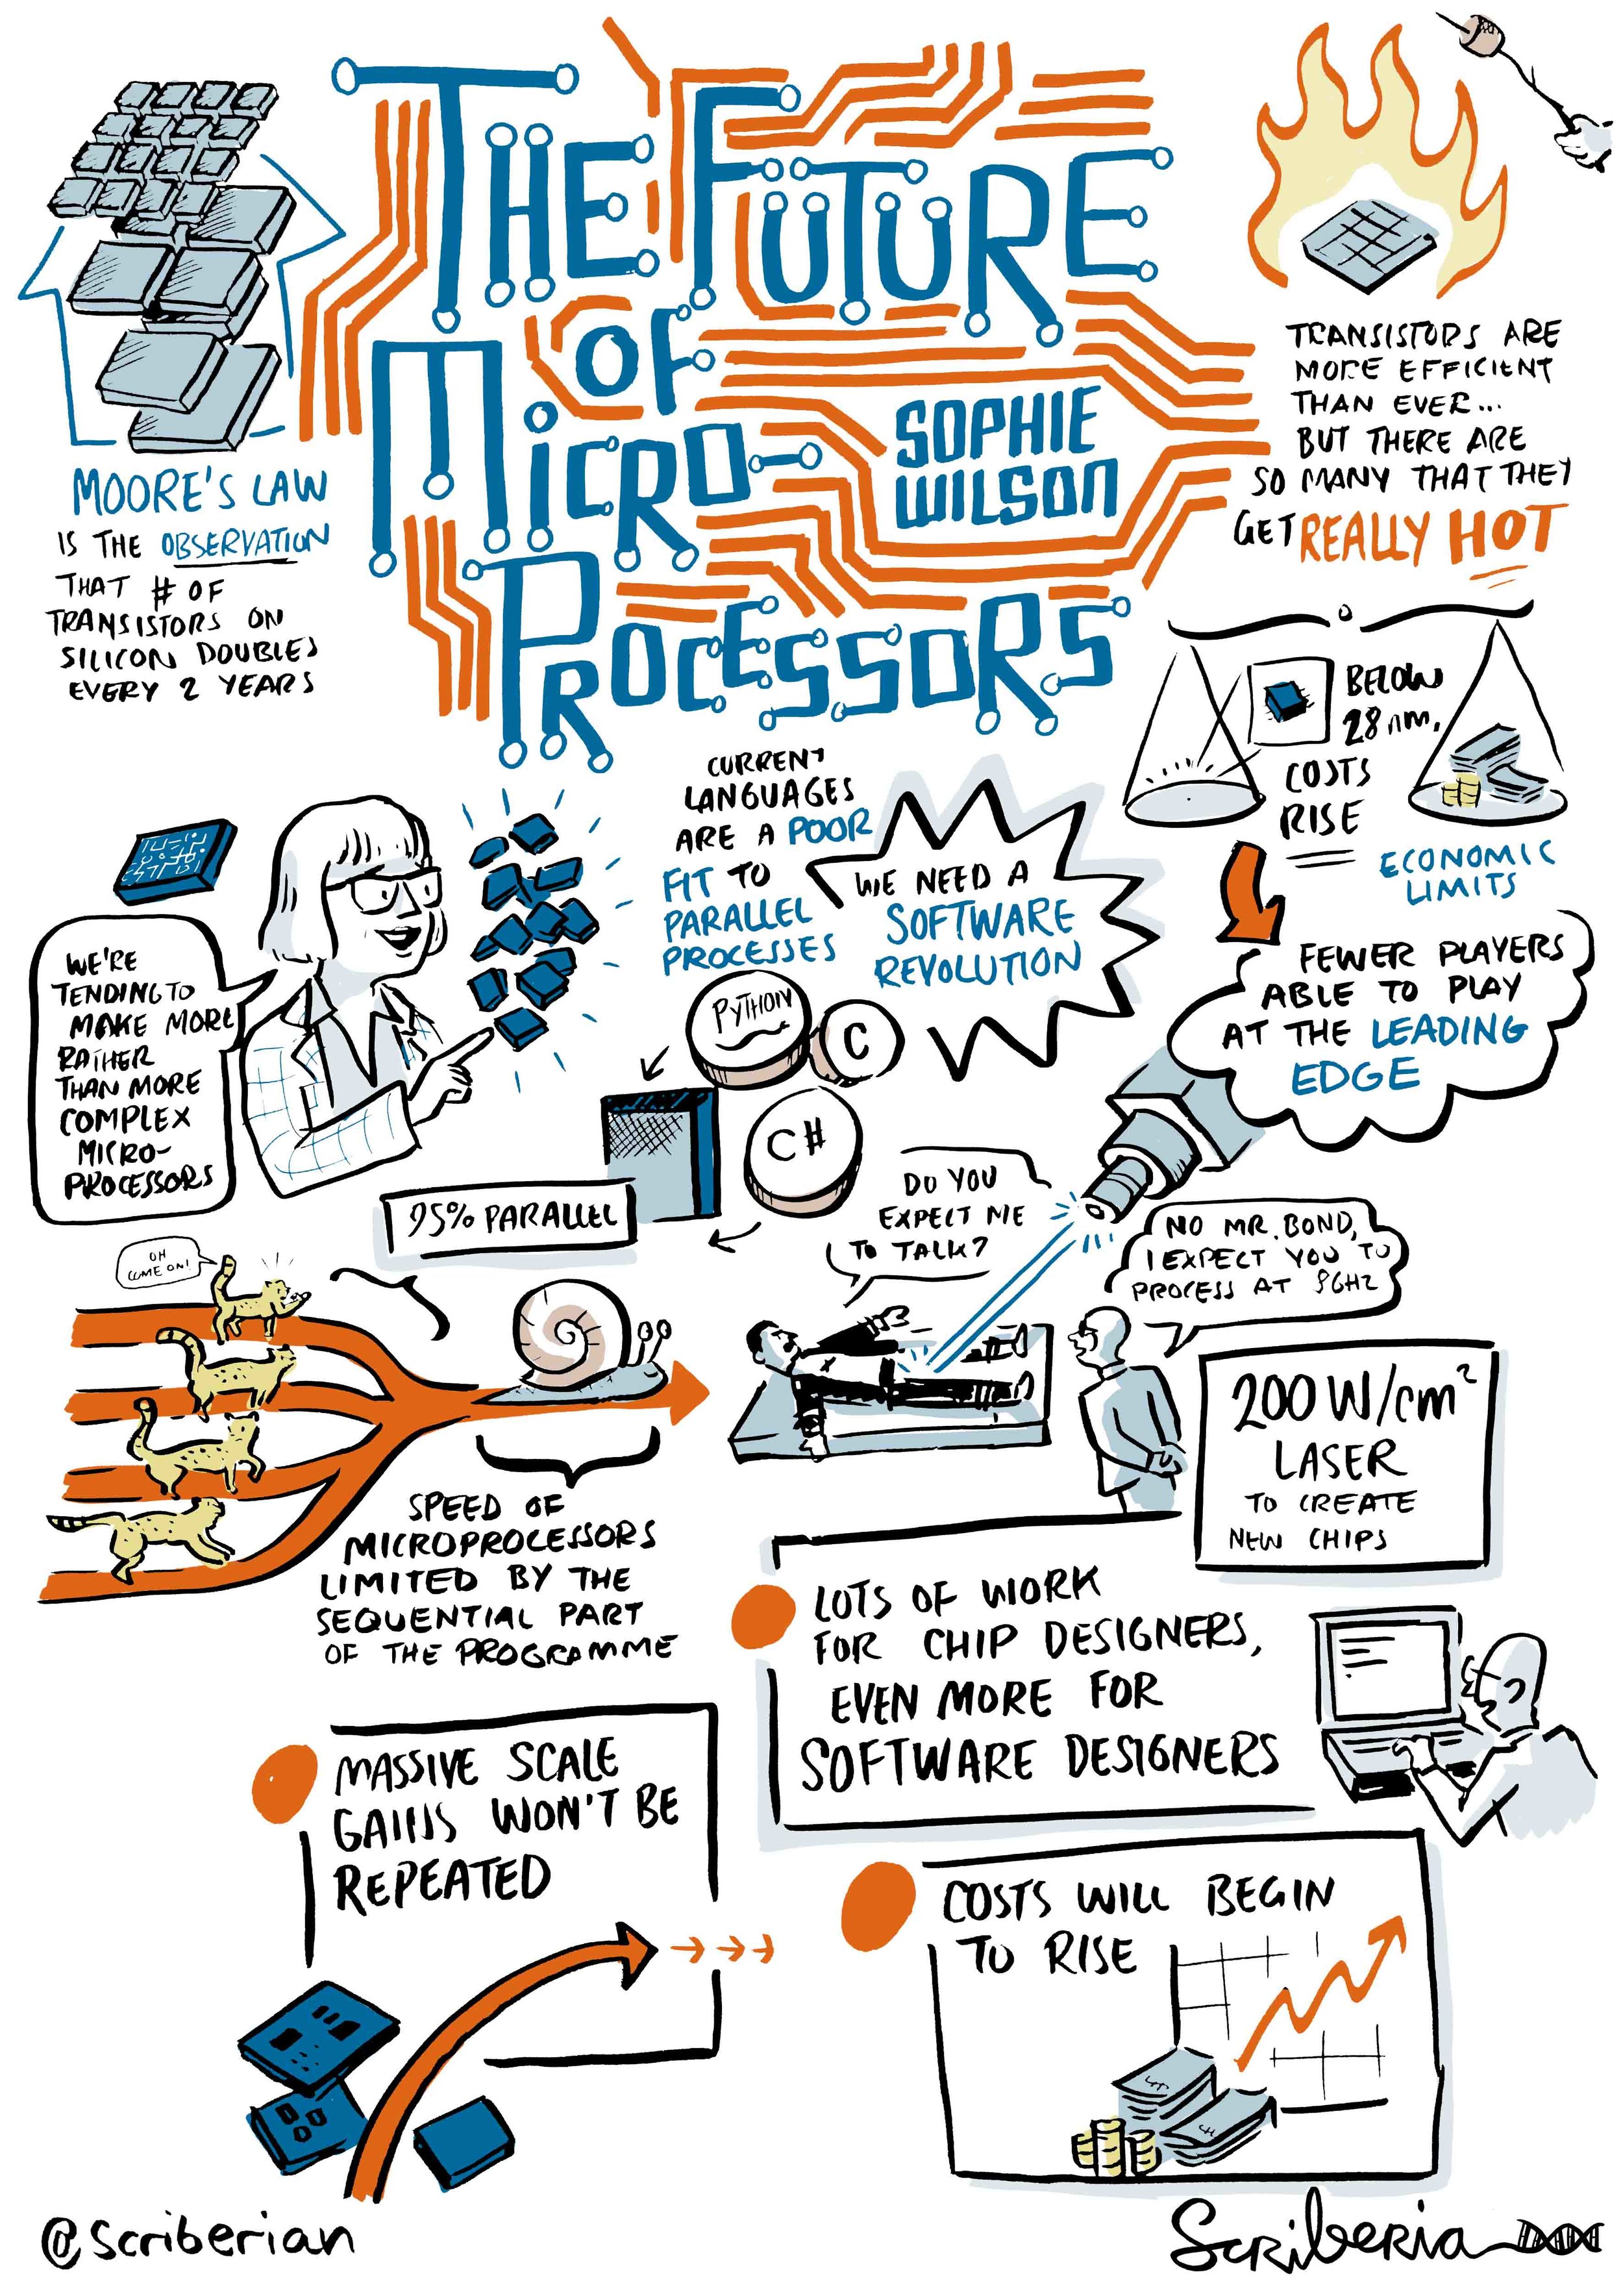 THE FUTURE
OF
MICRO-
PROCESSORS
SOPHIE
WILSON
MOORE'S LAW
IS THE OBSERVATION
THAT # OF
TRANSISTORS ON
SILICON DOUBLES
EVERY 2 YEARS
TRANSISTORS ARE
MORE EFFICIENT
THAN EVER...
BUT THERE ARE
SO MANY THAT THEY
GET REALLY HOT
BELOW
28nm,
COSTS
RISE
ECONOMIC
LIMITS
FEWER PLAYERS
ABLE TO PLAY
AT THE LEADING
EDGE
CURRENT
LANGUAGES
ARE A POOR
FIT TO
PARALLEL
PROCESSES
WE NEED A
SOFTWARE
REVOLUTION
PYTHON
C
C#
WE'RE
TENDING TO
MAKE MORE
RATHER
THAN MORE
COMPLEX
MICRO-
PROCESSORS
95% PARALLEL
OH
COME ON!
SPEED OF
MICROPROCESSORS
LIMITED BY THE
SEQUENTIAL PART
OF THE PROGRAMME
DO YOU
EXPECT ME
TO TALK?
NO MR. BOND,
I EXPECT YOU TO
PROCESS AT 8GHZ
200W/cm²
LASER
TO CREATE
NEW CHIPS
LOTS OF WORK
FOR CHIP DESIGNERS,
EVEN MORE FOR
SOFTWARE DESIGNERS
MASSIVE SCALE
GAINS WON'T BE
REPEATED
COSTS WILL BEGIN
TO RISE
@scriberian
Scriberia